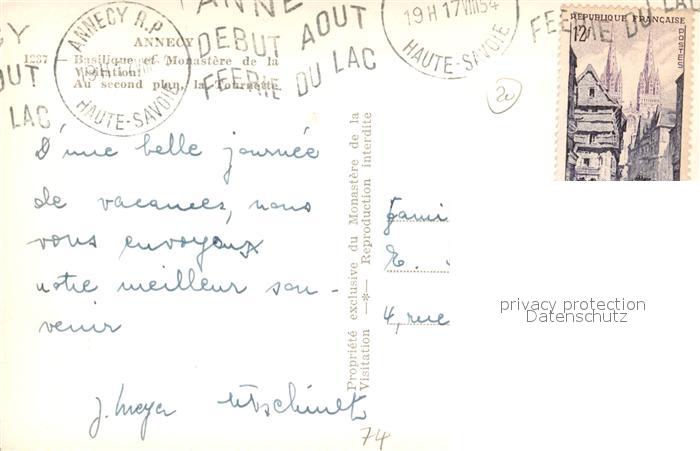 ANNECY
1237 — Basilique et Monastère de la
Visitation.
Au second plan, la Tournette.
ANNECY R.P.
HAUTE-SAVOIE
DEBUT AOUT
FEERIE DU LAC
19H 17 VIII 54
HAUTE-SAVOIE
FEERIE DU LAC
OUT
LAC
REPUBLIQUE FRANÇAISE
12F
POSTES
20
D'une belle journée
de vacances, nous
vous envoyons
notre meilleur sou-
venir
J. Meyer
Propriété exclusive du Monastère de la
Visitation —*— Reproduction interdite
fami
4, rue
74
privacy protection
Datenschutz